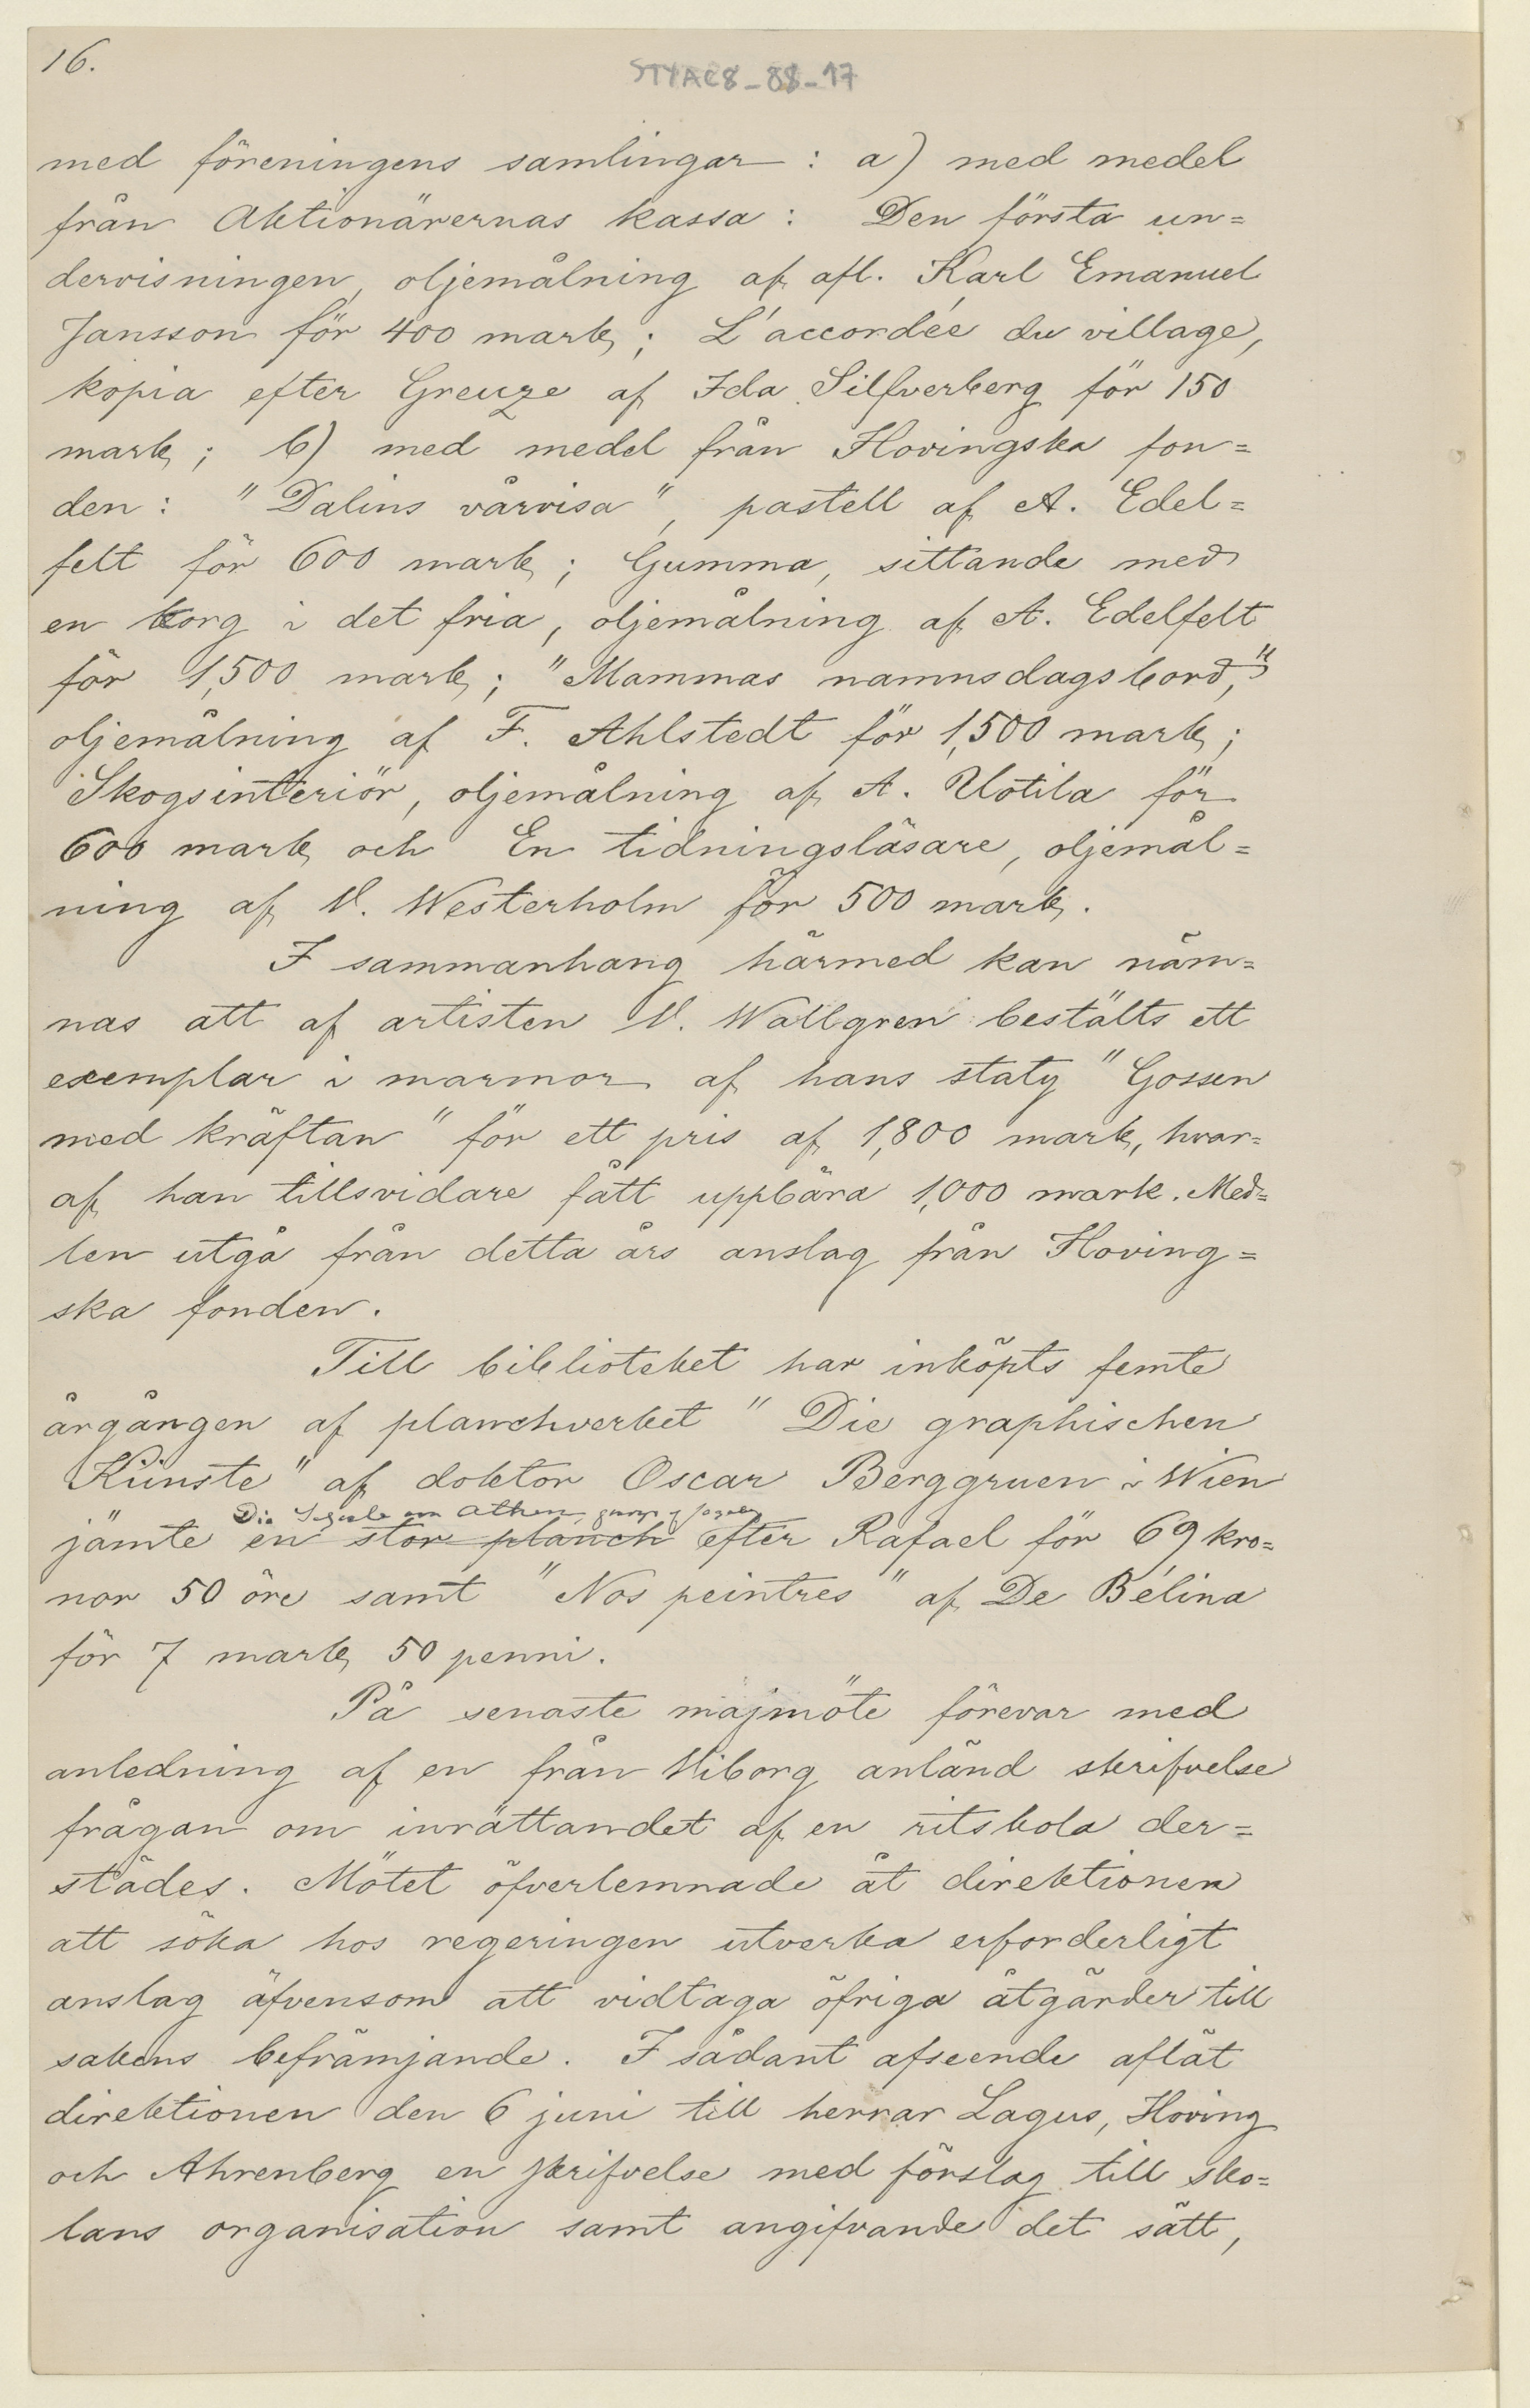 16.
STYAC8_88_17
med föreningens samlingar : a) med medel
från Aktionärernas kassa : Den första un=
dervisningen, oljemålning af afl. Karl Emanuel
Jansson för 400 mark ; L'accordée du village,
kopia efter Greuze af Ida Silfverberg för 150
mark ; b) med medel från Hovingska fon=
den : "Dalins vårvisa", pastell af A. Edel=
felt för 600 mark ; Gumma, sittande med
en korg i det fria, oljemålning af A. Edelfelt
för 1,500 mark ; "Mammas namnsdagsbord,"
oljemålning af F. Ahlstedt för 1,500 mark ;
Skogsinteriör, oljemålning af A. Uotila för
600 mark och En tidningsläsare, oljemål=
ning af V. Westerholm för 500 mark.
I sammanhang härmed kan näm=
nas att af artisten V. Wallgren bestälts ett
exemplar i marmor af hans staty "Gossen
med kräftan" för ett pris af 1,800 mark, hvar=
af han tillsvidare fått uppbära 1,000 mark. Med=
len utgå från detta års anslag från Hoving=
ska fonden.
Till biblioteket har inköpts femte
årgången af planchverket "Die graphischen
Künste" af doktor Oscar Berggruen i Wien
Die Schule von Athen
jämte en stor planch efter Rafael för 69 kro=
nor 50 öre samt "Nos peintres" af De Bélina
för 7 mark 50 penni.
På senaste majmöte förevar med
anledning af en från Wiborg anländ skrifvelse
frågan om inrättandet af en ritskola der=
städes. Mötet öfverlemnade åt direktionen
att söka hos regeringen utverka erforderligt
anslag äfvensom att vidtaga öfriga åtgärder till
sakens befrämjande. I sådant afseende aflät
direktionen den 6 juni till herrar Lagus, Hoving
och Ahrenberg en skrifvelse med förslag till sko=
lans organisation samt angifvande det sätt,